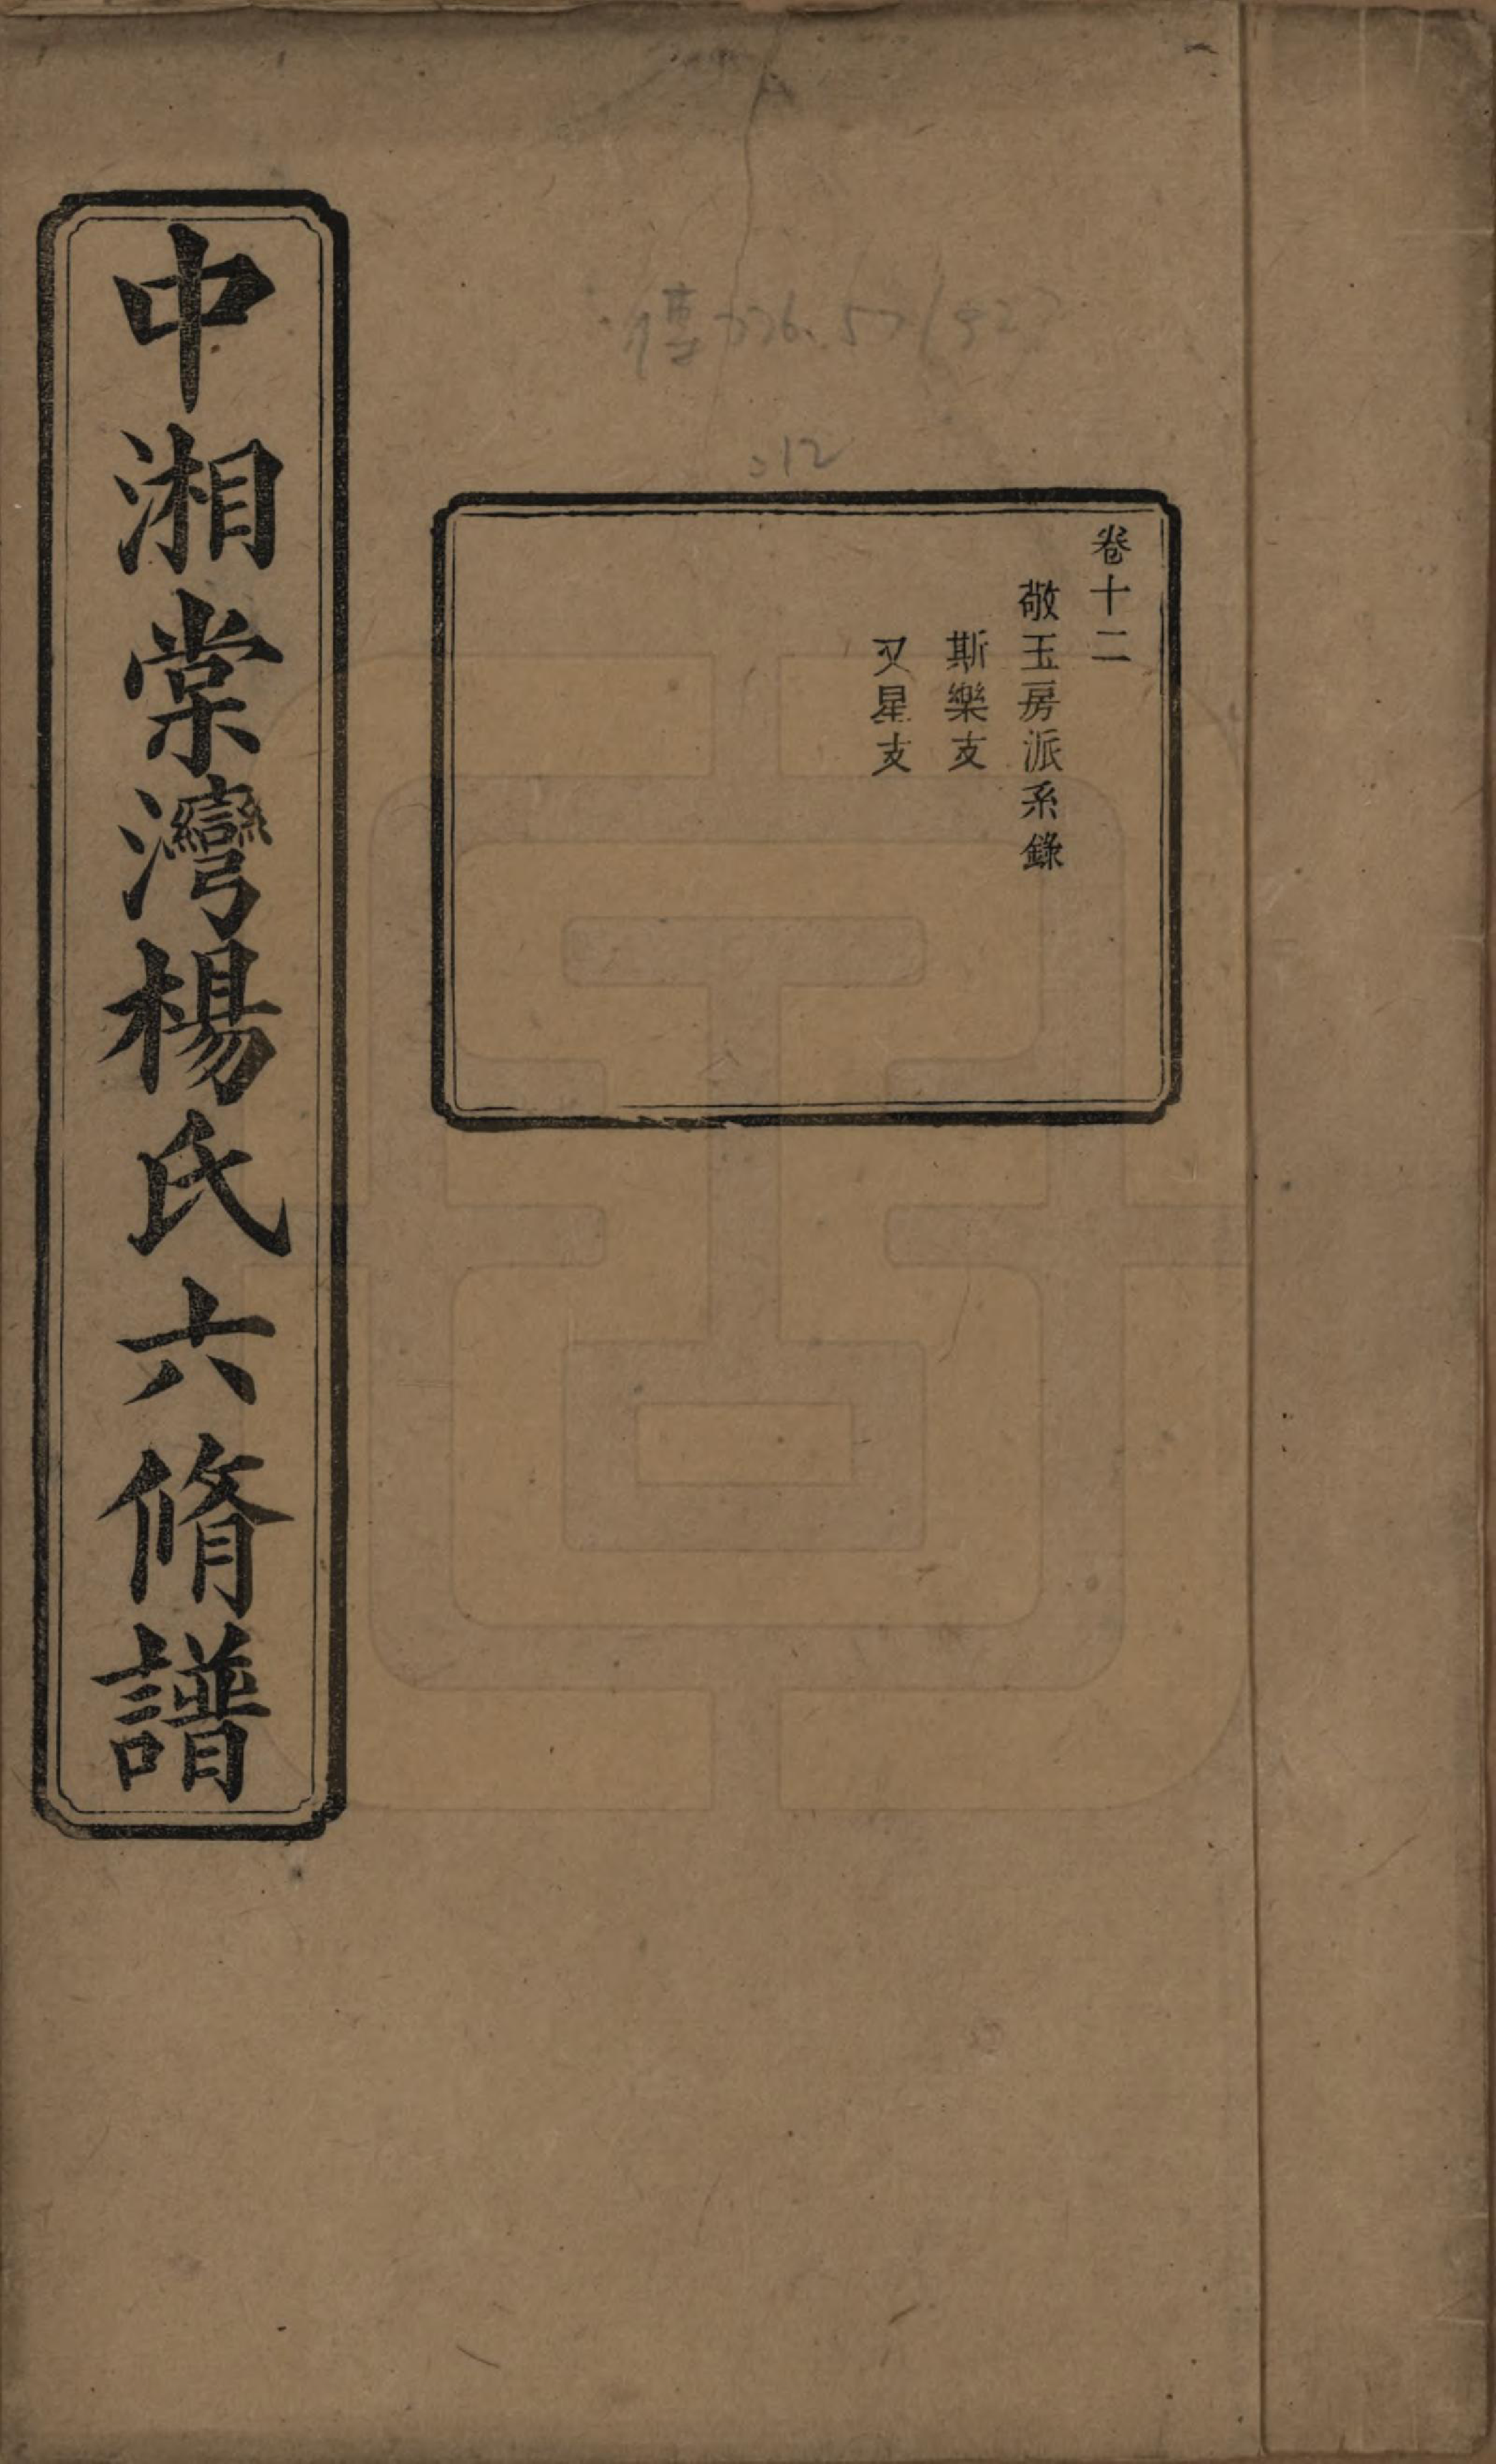 卷十二
敬玉房派系錄
斯樂支
又星支
中湘棠灣楊氏六脩譜
:12